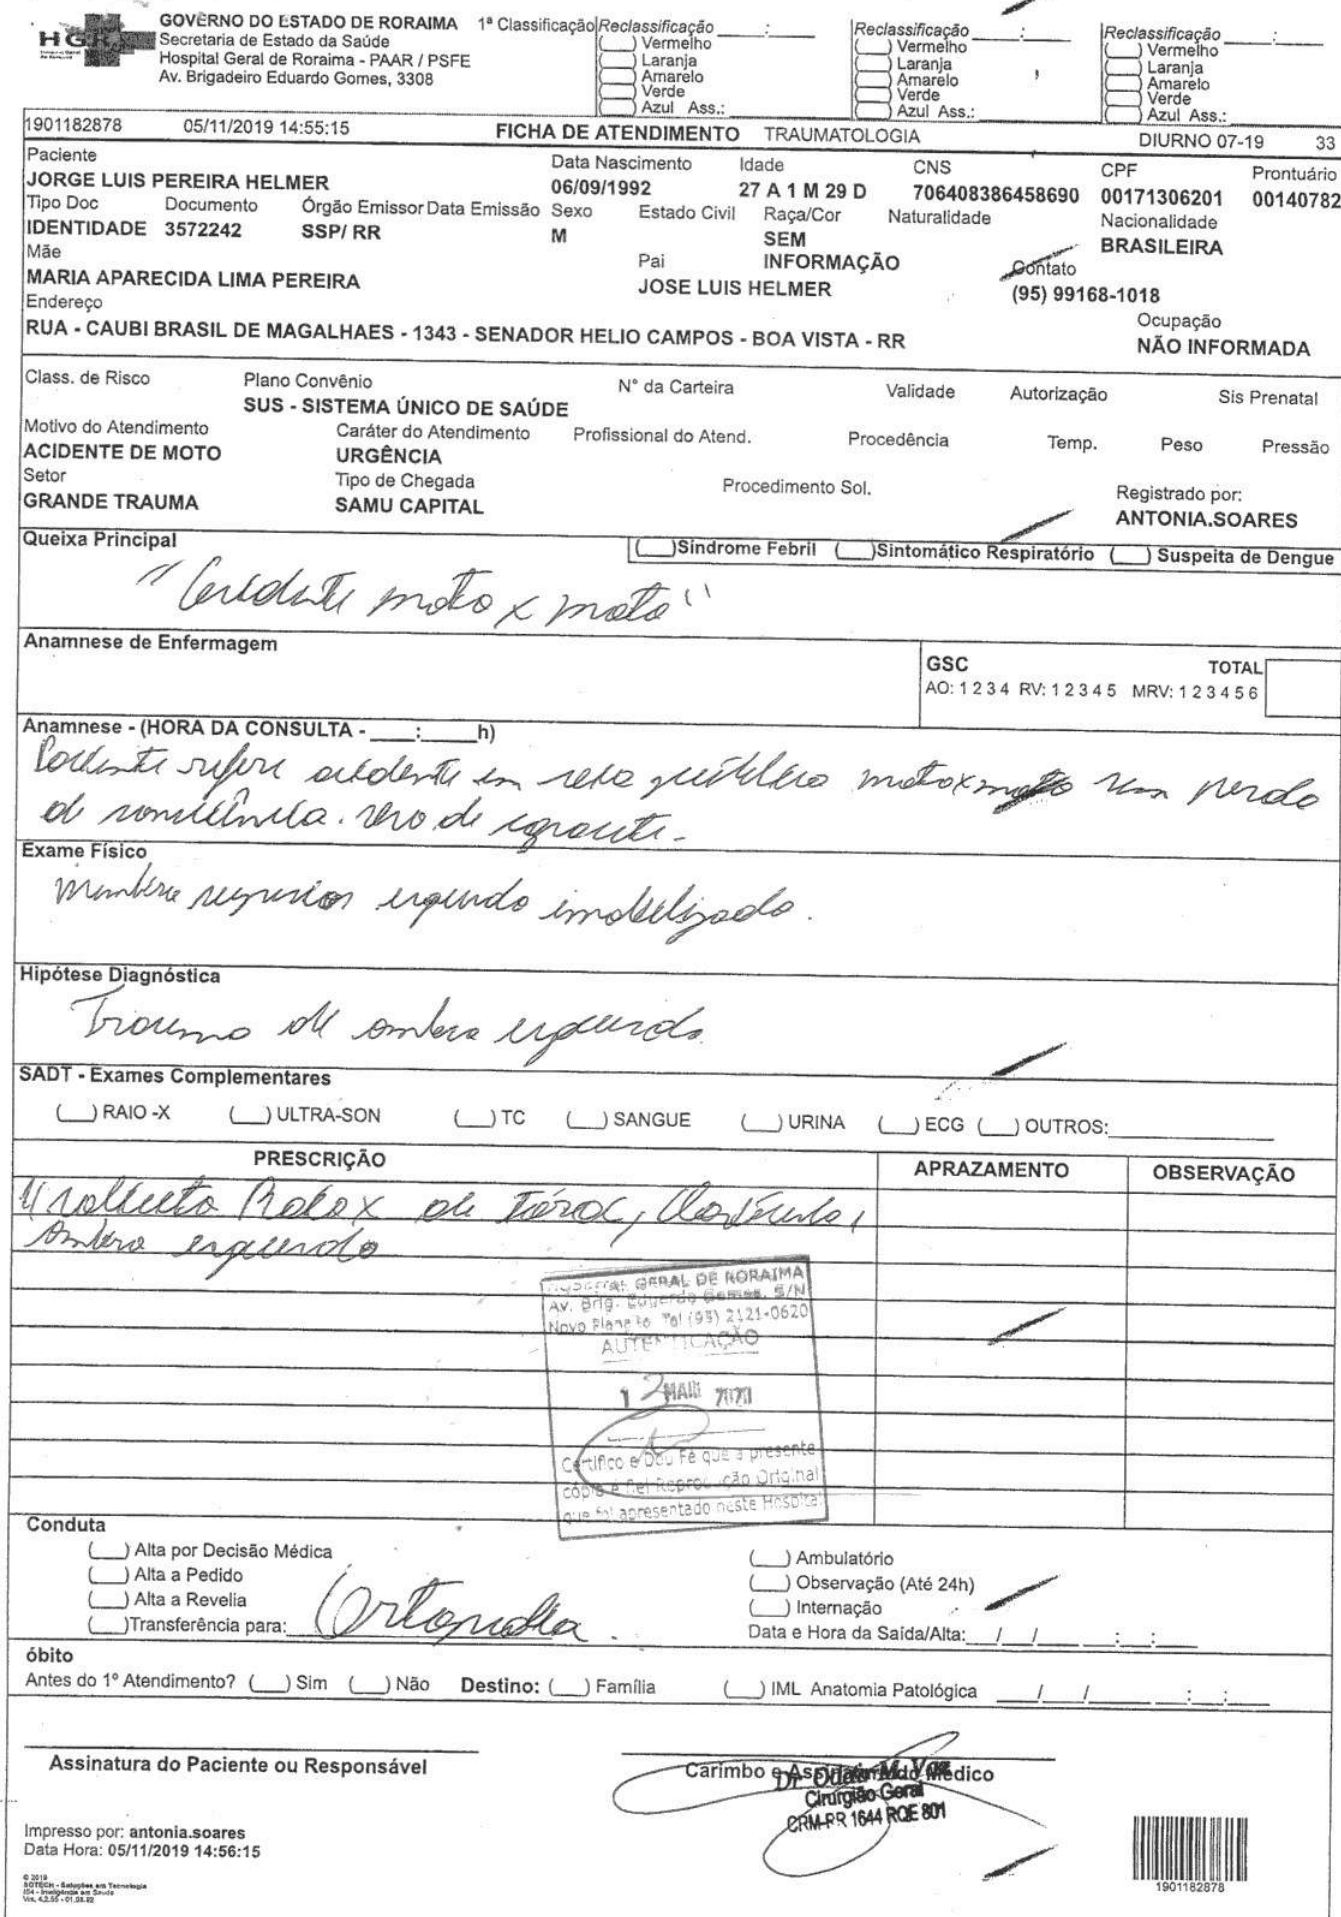 HGR
GOVERNO DO ESTADO DE RORAIMA
Secretaria de Estado da Saúde
Hospital Geral de Roraima - PAAR / PSFE
Av. Brigadeiro Eduardo Gomes, 3308
1ª Classificação
Reclassificação ___:___
(___) Vermelho
(___) Laranja
(___) Amarelo
(___) Verde
(___) Azul Ass.:
Reclassificação ___:___
(___) Vermelho
(___) Laranja
(___) Amarelo
(___) Verde
(___) Azul Ass.:
Reclassificação ___:___
(___) Vermelho
(___) Laranja
(___) Amarelo
(___) Verde
(___) Azul Ass.:
1901182878 05/11/2019 14:55:15 FICHA DE ATENDIMENTO TRAUMATOLOGIA DIURNO 07-19 33
Paciente Data Nascimento Idade CNS CPF Prontuário
JORGE LUIS PEREIRA HELMER 06/09/1992 27 A 1 M 29 D 706408386458690 00171306201 00140782
Tipo Doc Documento Órgão Emissor Data Emissão Sexo Estado Civil Raça/Cor Naturalidade Nacionalidade
IDENTIDADE 3572242 SSP/ RR M SEM INFORMAÇÃO BRASILEIRA
Mãe Pai Contato
MARIA APARECIDA LIMA PEREIRA JOSE LUIS HELMER (95) 99168-1018
Endereço Ocupação
RUA - CAUBI BRASIL DE MAGALHAES - 1343 - SENADOR HELIO CAMPOS - BOA VISTA - RR NÃO INFORMADA
Class. de Risco Plano Convênio N° da Carteira Validade Autorização Sis Prenatal
SUS - SISTEMA ÚNICO DE SAÚDE
Motivo do Atendimento Caráter do Atendimento Profissional do Atend. Procedência Temp. Peso Pressão
ACIDENTE DE MOTO URGÊNCIA
Setor Tipo de Chegada Procedimento Sol. Registrado por:
GRANDE TRAUMA SAMU CAPITAL ANTONIA.SOARES
Queixa Principal (___)Síndrome Febril (___)Sintomático Respiratório (___) Suspeita de Dengue
"Acidente moto x moto"
Anamnese de Enfermagem
GSC TOTAL
AO: 1 2 3 4 RV: 1 2 3 4 5 MRV: 1 2 3 4 5 6
Anamnese - (HORA DA CONSULTA - ____:____h)
Paciente refere acidente em moto x moto sem perda
de consciência. uso de capacete.
Exame Físico
membro superior esquerdo imobilizado.
Hipótese Diagnóstica
Trauma de ombro esquerdo.
SADT - Exames Complementares
(___) RAIO -X (___) ULTRA-SON (___) TC (___) SANGUE (___) URINA (___) ECG (___) OUTROS:____
PRESCRIÇÃO APRAZAMENTO OBSERVAÇÃO
Raio x de Tórax, Clavícula,
Ombro esquerdo
HOSPITAL GERAL DE RORAIMA
Av. Brig. Eduardo Gomes, S/N
Novo Planalto Tel (95) 2121-0620
AUTENTICAÇÃO
12 MAIO 2020
Certifico e Dou Fé que a presente
cópia é fiel Reprodução Original
que foi apresentado neste Hospital
Conduta
(___) Alta por Decisão Médica
(___) Alta a Pedido
(___) Alta a Revelia
(___)Transferência para: Ortopedia.
(___) Ambulatório
(___) Observação (Até 24h)
(___) Internação
Data e Hora da Saída/Alta: ___/___/____ ___:___:___
óbito
Antes do 1º Atendimento? (___) Sim (___) Não Destino: (___) Família (___) IML Anatomia Patológica ___/___/____ ___:___:___
Assinatura do Paciente ou Responsável
Carimbo e Assinatura do Médico
Cirurgião Geral
CRM-RR 1644 RQE 801
Impresso por: antonia.soares
Data Hora: 05/11/2019 14:56:15
© 2019
SOTECH - Soluções em Tecnologia
1901182878